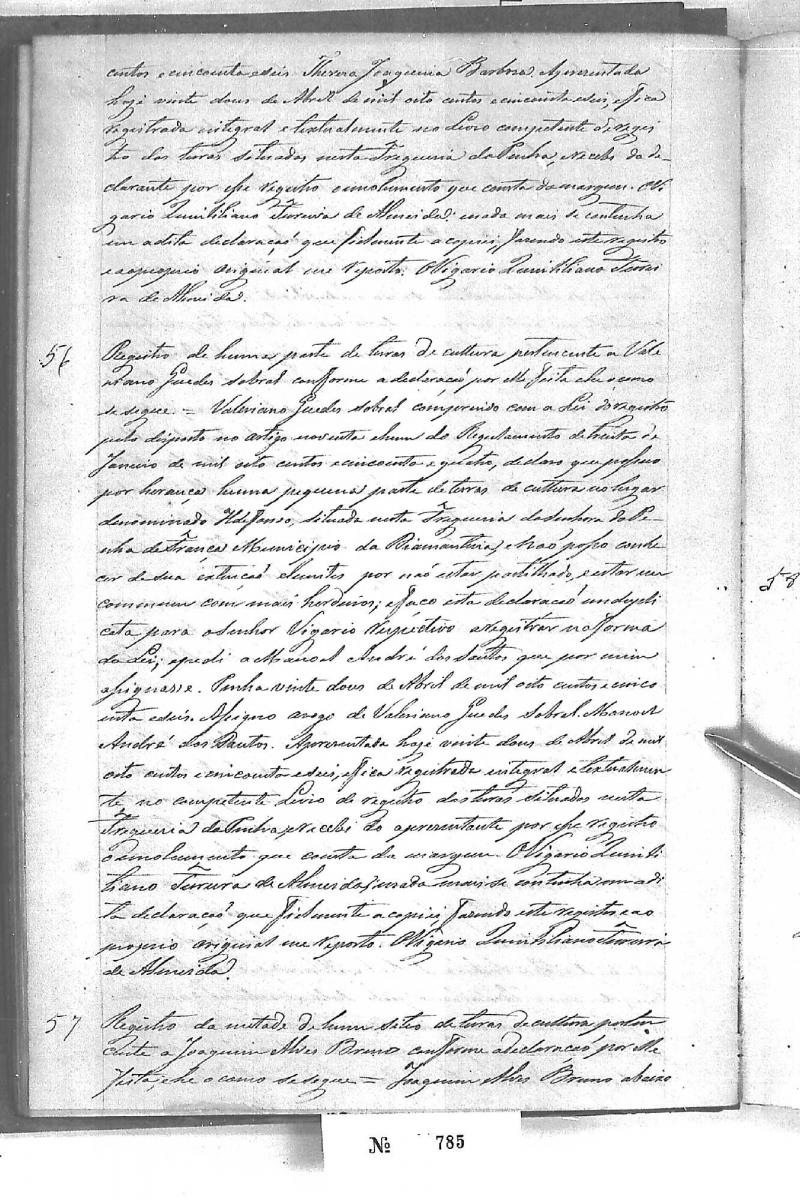 centos e cincoenta e seis. Thereza Joaquina Barboza. Apresentada
hoje vinte dous de Abril de mil oito centos e cincoenta e seis, e fica
registrada integral e textualmente no Livro competente de regis
tro das terras situadas nesta Freguezia da Penha, recebi da de-
clarante por esse registro o imolumento que consta da margem. O Vi
gario Quintiliano Ferreira de Almeida. e nada mais se continha
em a dita declaraçaõ que fielmente a copiei, fazendo este registro
e ao proprio original me reporto. O Vigario Quintiliano Ferrei
ra de Almeida.
56 Registro de huma parte de terras de cultura pertencente a Vale
riano Guedes Sobral conforme a declaraçaõ por elle feita che o como
se segue. = Valeriano Guedes Sobral comprindo com a Lei do registro
pelo disposto no artigo noventa e hum do Regulamento de trinta de
Janeiro de mil oito centos e cincoenta e quatro, declaro que possuo
por herança huma pequena parte de terras de cultura no lugar
denominado Ildefonso, situada nesta Freguezia da Senhora da Pe-
nha de França Municipio da Diamantina, e naõ posso conhe
cer de sua extençaõ e limites por naõ estar partilhado, e estar em
commum com mais herdeiros; e faço esta declaraçaõ em dupli
cata para o Senhor Vigario respectivo a registrar na forma
da Lei; e pedi a Manoel André dos Santos que por mim
assignasse. Penha vinte dous de Abril de mil oito centos e cinco
enta e seis. Assigno arogo de Valeriano Guedes Sobral. Manoel
André dos Santos. Apresentada hoje vinte dous de Abril de mil
oito centos e cincoenta e seis, e fica registrada integral e textualmen
te no competente Livro de registro das terras situadas nesta
Freguezia da Penha, e recebi do apresentante por esse registro
o imolumento que consta da margem. O Vigario Quinti
liano Ferreira de Almeida, e nada mais se continha em a di
ta declaraçaõ que fielmente a copiei, fazendo este registro e ao
proprio original me reporto. O Vigario Quintiliano Ferreira
de Almeida.
57 Registro da metade de hum sitio de terras de cultura perten
cente a Joaquim Alves Bruno conforme a declaraçaõ por elle
feita, che o como se segue = Joaquim Alves Bruno abaixo
58
Nº 785